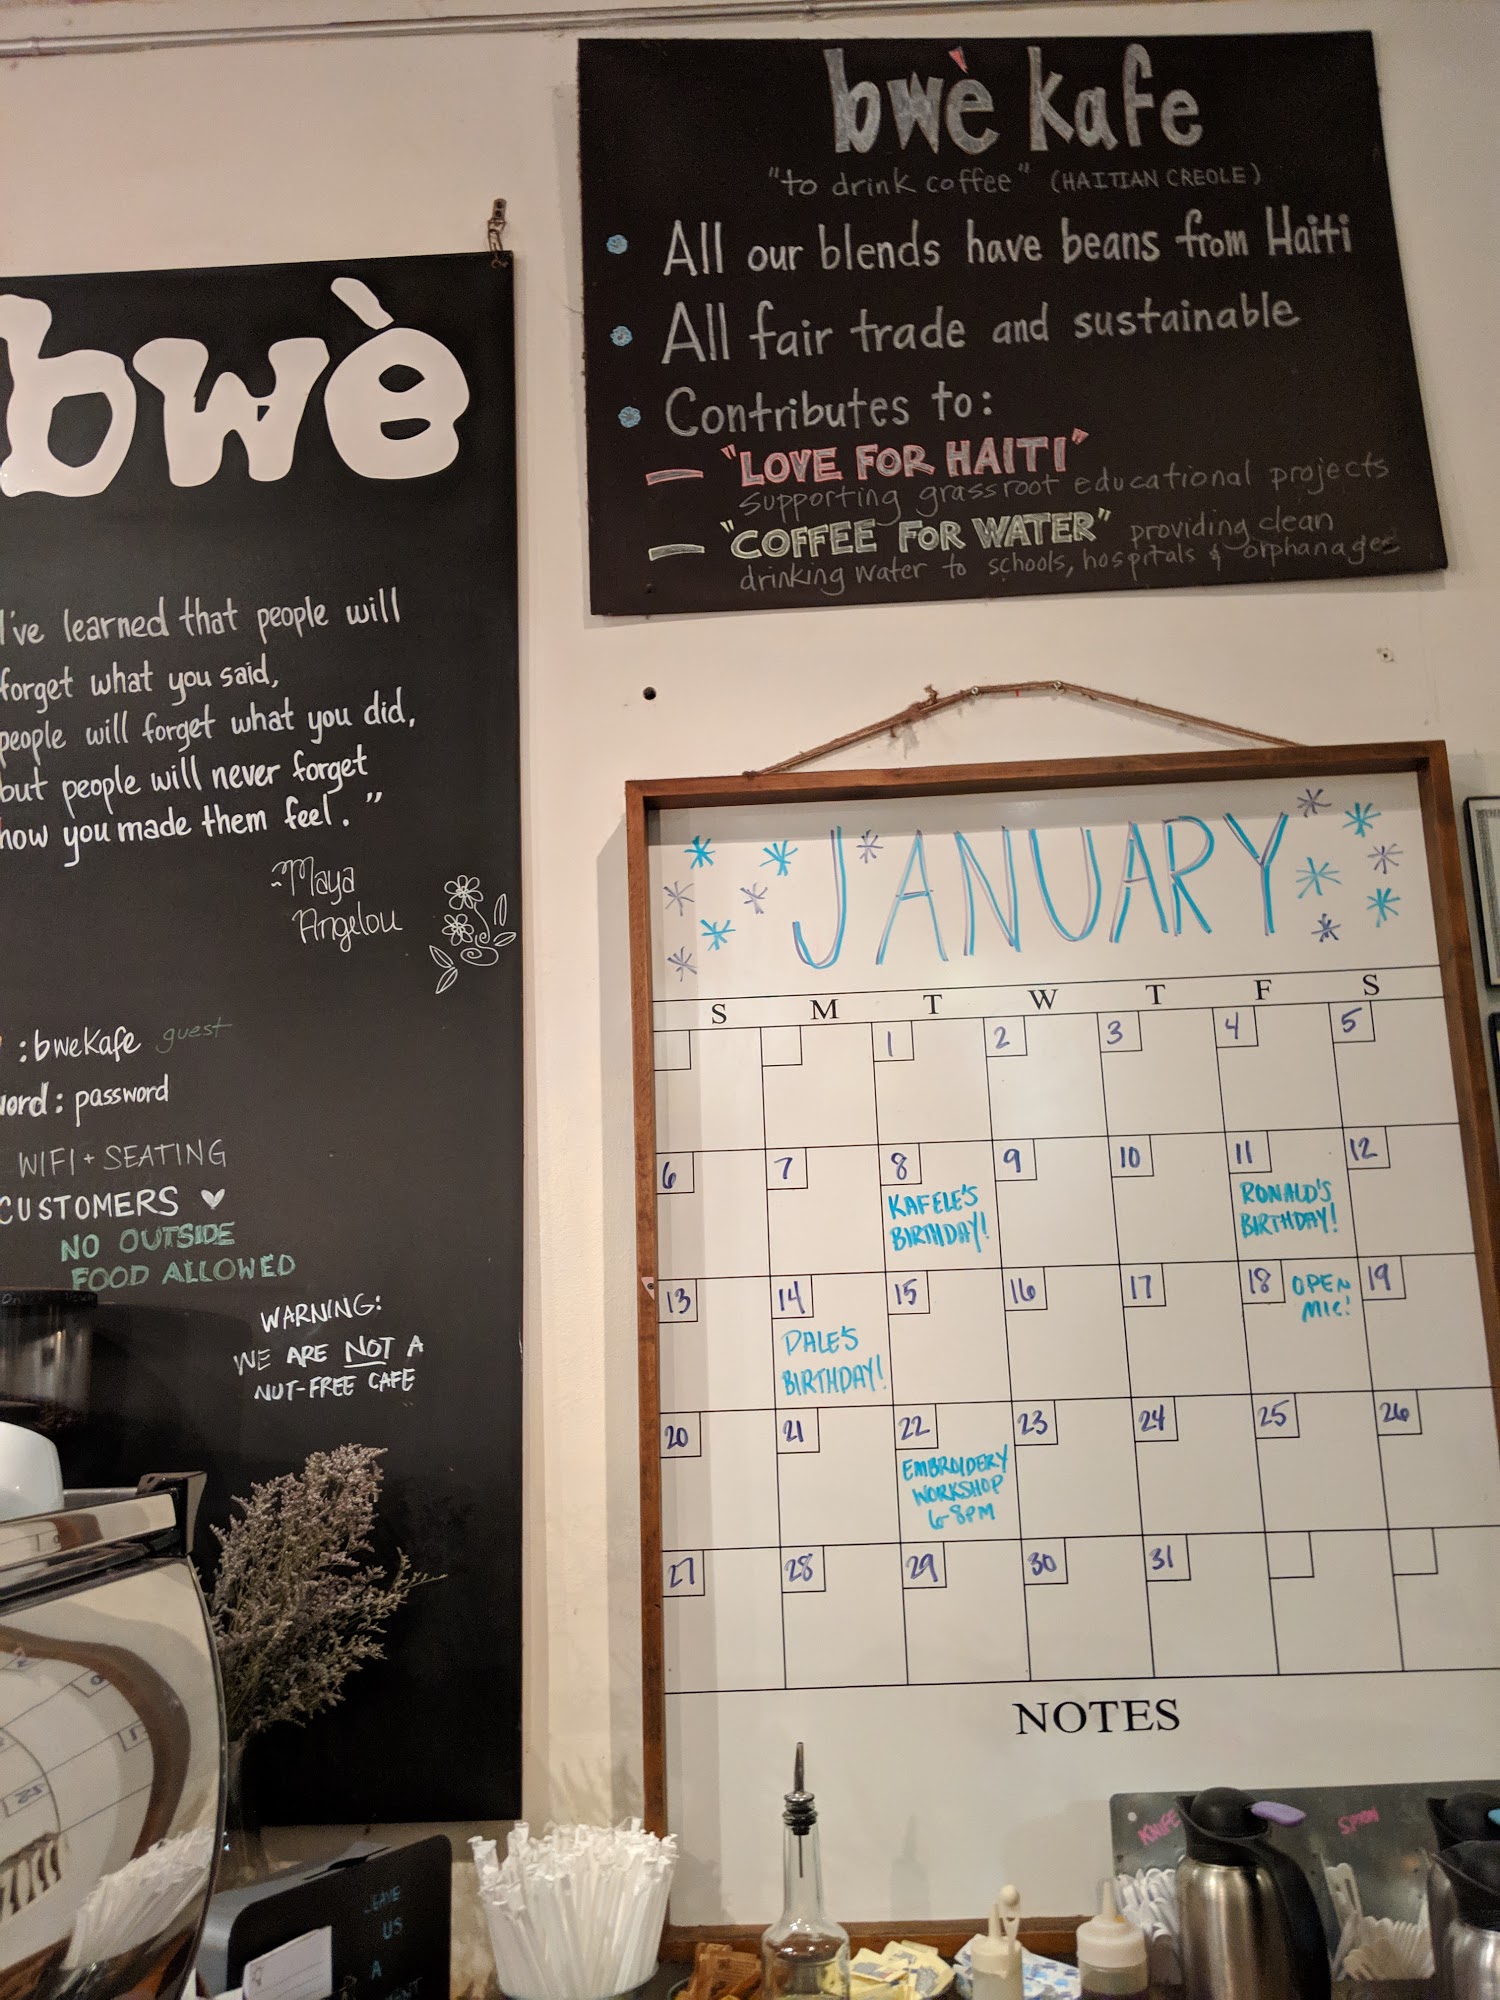 bwè
I've learned that people will
forget what you said,
people will forget what you did,
but people will never forget
how you made them feel."
~Maya
Angelou
: bwekafe guest
word: password
WIFI + SEATING
CUSTOMERS ♥
NO OUTSIDE
FOOD ALLOWED
WARNING:
WE ARE NOT A
NUT-FREE CAFE
LEAVE
US
A
bwè kafe
"to drink coffee" (HAITIAN CREOLE)
All our blends have beans from Haiti
All fair trade and sustainable
Contributes to:
— "LOVE FOR HAITI"
supporting grassroot educational projects
— "COFFEE FOR WATER" providing clean
drinking water to schools, hospitals & orphanages
JANUARY
S M T W T F S
1 2 3 4 5
6 7 8 9 10 11 12
KAFELE'S
BIRTHDAY!
RONALD'S
BIRTHDAY!
13 14 15 16 17 18 OPEN 19
MIC!
DALE'S
BIRTHDAY!
20 21 22 23 24 25 26
EMBROIDERY
WORKSHOP
6-8PM
27 28 29 30 31
NOTES
KNIFE
SPOON